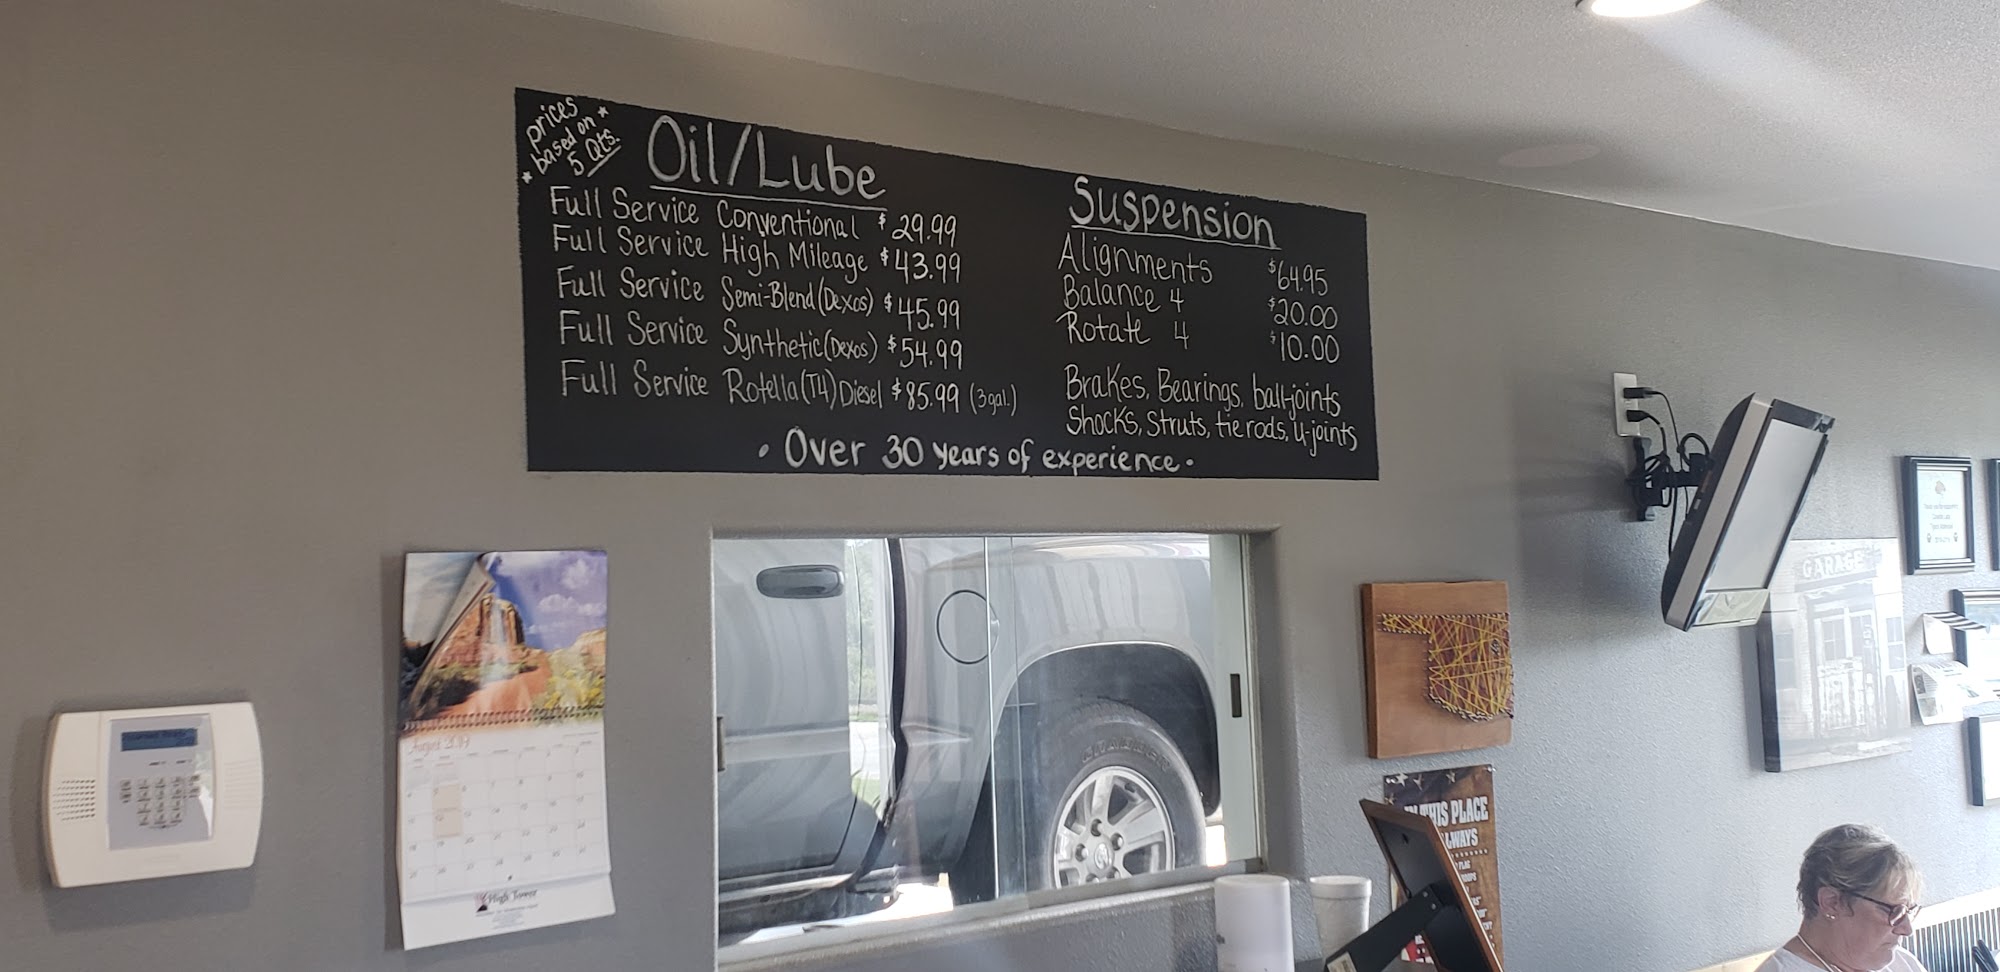 *prices
based on*
5 Qts.
Oil/Lube
Full Service Conventional $29.99
Full Service High Mileage $43.99
Full Service Semi-Blend (Dexos) $45.99
Full Service Synthetic (Dexos) $54.99
Full Service Rotella (T4) Diesel $85.99 (3 gal.)
Suspension
Alignments $64.95
Balance 4 $20.00
Rotate 4 $10.00
Brakes, Bearings, ball-joints
Shocks, Struts, tie rods, u-joints
• Over 30 years of experience •
August 2019
High Tower
GARAGE
THIS PLACE